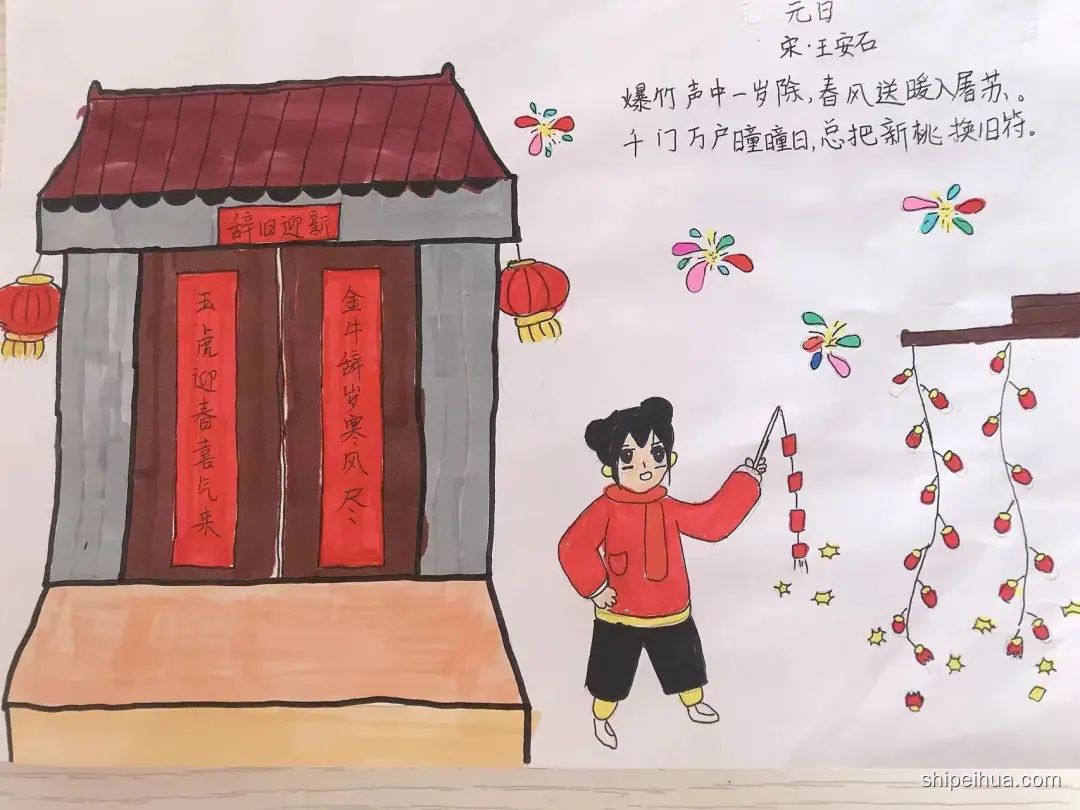 元日
宋·王安石
爆竹声中一岁除,春风送暖入屠苏。
千门万户曈曈日,总把新桃换旧符。
辞旧迎新
玉虎迎春喜气来
金牛辞岁寒风尽
shipeihua.com